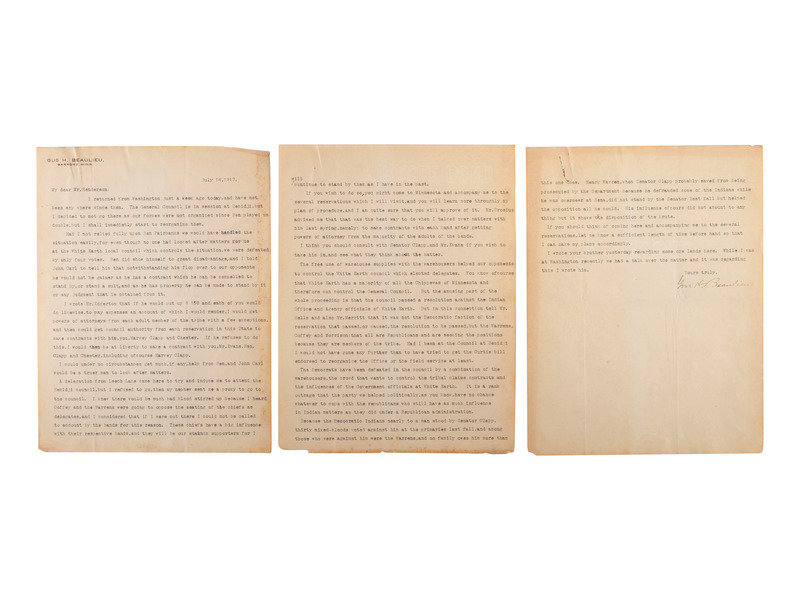 GUS H. BEAULIEU,
BARROWS, MINN.
July 14, 1917.
My dear Mr. Henderson:
I returned from Washington just a week ago today, and have not
been any where since then. The General Council is in session at Bemidji, but
I decided to not go there as our forces were not organized since Ben played us
double, but I shall immediately start to reorganize them.
Had I not relied fully upon Ben Fairbanks we would have handled the
situation easily, for even though no one had looked after matters for me
at the White Earth local council which controls the situation, we were defeated
by only four votes. Ben did show himself to great disadvantage, and I told
John Carl to tell him that notwithstanding his flop over to our opponents
he would not be gainer as he has a contract which he can be compelled to
stand by, or stand a suit, and as he has property he can be made to stand by it
or any judgment that is obtained from it.
I wrote Mr. Ederton that if he would put up $150 and each of you would
do likewise, to pay expenses an account of which I would render, I would get
powers of attorneys from each adult member of the tribe with a few exceptions,
and then could get council authority from each reservation in this State to
make contracts with him, you, Harvey Clapp and Chester. If he refuses to do
this, I would then be at liberty to make a contract with you, Mr. Evans, Ben,
Clapp and Chester, including of course Harvey Clapp.
I could under no circumstances get much, if any, help from Ben, and John Carl
would be a truer man to look after matters.
A delegation from Leech Lake came here to try and induce me to attend the
Bemidji council, but I refused to go, then my nephew sent me a proxy to go to
the council. I knew there would be much bad blood stirred up because I heard
Coffey and the Warrens were going to oppose the seating of the chiefs as
delegates, and I considered that if I were not there I could not be called
to account by the bands for this reason. These chiefs have a big influence
with their respective bands, and they will be our staunch supporters for I
will
continue to stand by them as I have in the past.
If you wish to do so, you might come to Minnesota and accompany me to the
several reservations which I will visit, and you will learn more throughly my
plan of procedure, and I am quite sure that you will approve of it. Mr.
advised me that that was the best way to do when I talked over matters with
him last spring, namely: to make contracts with each band after getting
powers of attorney from the majority of the adults of the bands.
I think you should consult with Senator Clapp, and Mr. Evans if you wish to
take him in, and see what they think about the matter.
The free use of warehouse supplies with the warehousers helped our opponents
to control the White Earth council which elected delegates. You know of course
that White Earth has a majority of all the Chippewas of Minnesota and
therefore can control the General Council. But the amusing part of the
whole proceeding is that the council passed a resolution against the Indian
Office and Agency officials of White Earth. But in this connection tell Mr.
Wells and also Mr. Meritt that it was not the Democratic faction of the
reservation that passed, or caused, the resolution to be passed, but the Warrens,
Coffey and Morrison, that all are Republicans and are seeking the positions
because they are members of the tribe. Had I been at the Council at Bemidji
I would not have gone any further than to have tried to get the Curtis bill
endorsed to reorganize the Office or the field service at least.
The Democrats have been defeated in the council by a combination of the
warehousers, the crowd that wants to control the tribal claims contracts and
the influences of the Government officials at White Earth. It is a rank
outrage that the party we helped politically, as you know, have no chance
whatever to cope with the republicans who still have as much influence
in Indian matters as they did under a Republican administration.
Because the Democratic Indians nearly to a man stood by Senator Clapp,
thirty mixed-bloods voted against him at the primaries last fall, and among
those who were against him were the Warrens, and no family owes him more than
this one does. Henry Warren, whom Senator Clapp probably saved from being
prosecuted by the Department because he defrauded some of the Indians while
he was overseer at Bena, did not stand by the Senator last fall but helped
the opposition all he could. His influence of course did not amount to any
thing but it shows the disposition of the brute.
If you should think of coming here and accompanying me to the several
reservations, let me know a sufficient length of time before hand so that
I can make my plans accordingly.
I wrote your brother yesterday regarding some ore lands here. While I was
at Washington recently we had a talk over the matter and it was regarding
this I wrote him.
Yours truly,
Gus H. Beaulieu